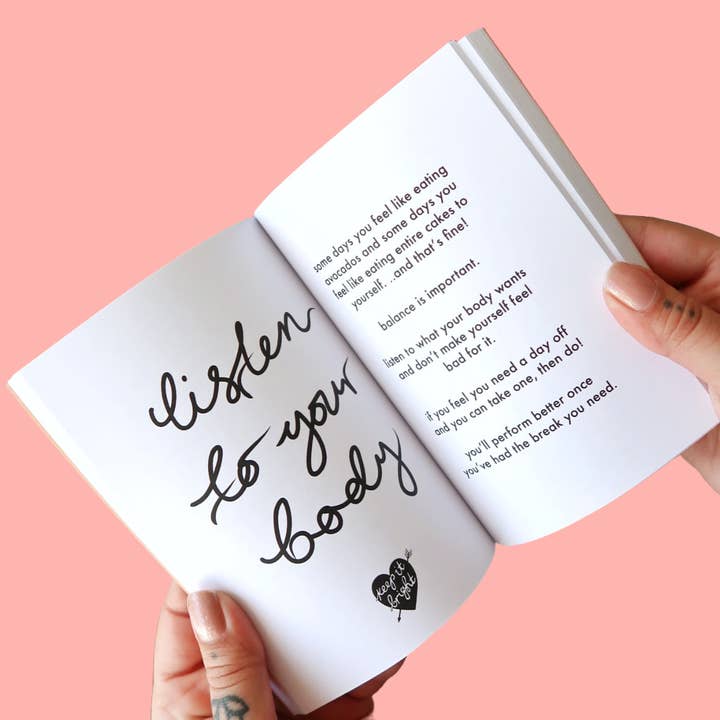 listen
to your
body
keep it
bright
some days you feel like eating
avocados and some days you
feel like eating entire cakes to
yourself...and that's fine!
balance is important.
listen to what your body wants
and don't make yourself feel
bad for it.
if you feel you need a day off
and you can take one, then do!
you'll perform better once
you've had the break you need.